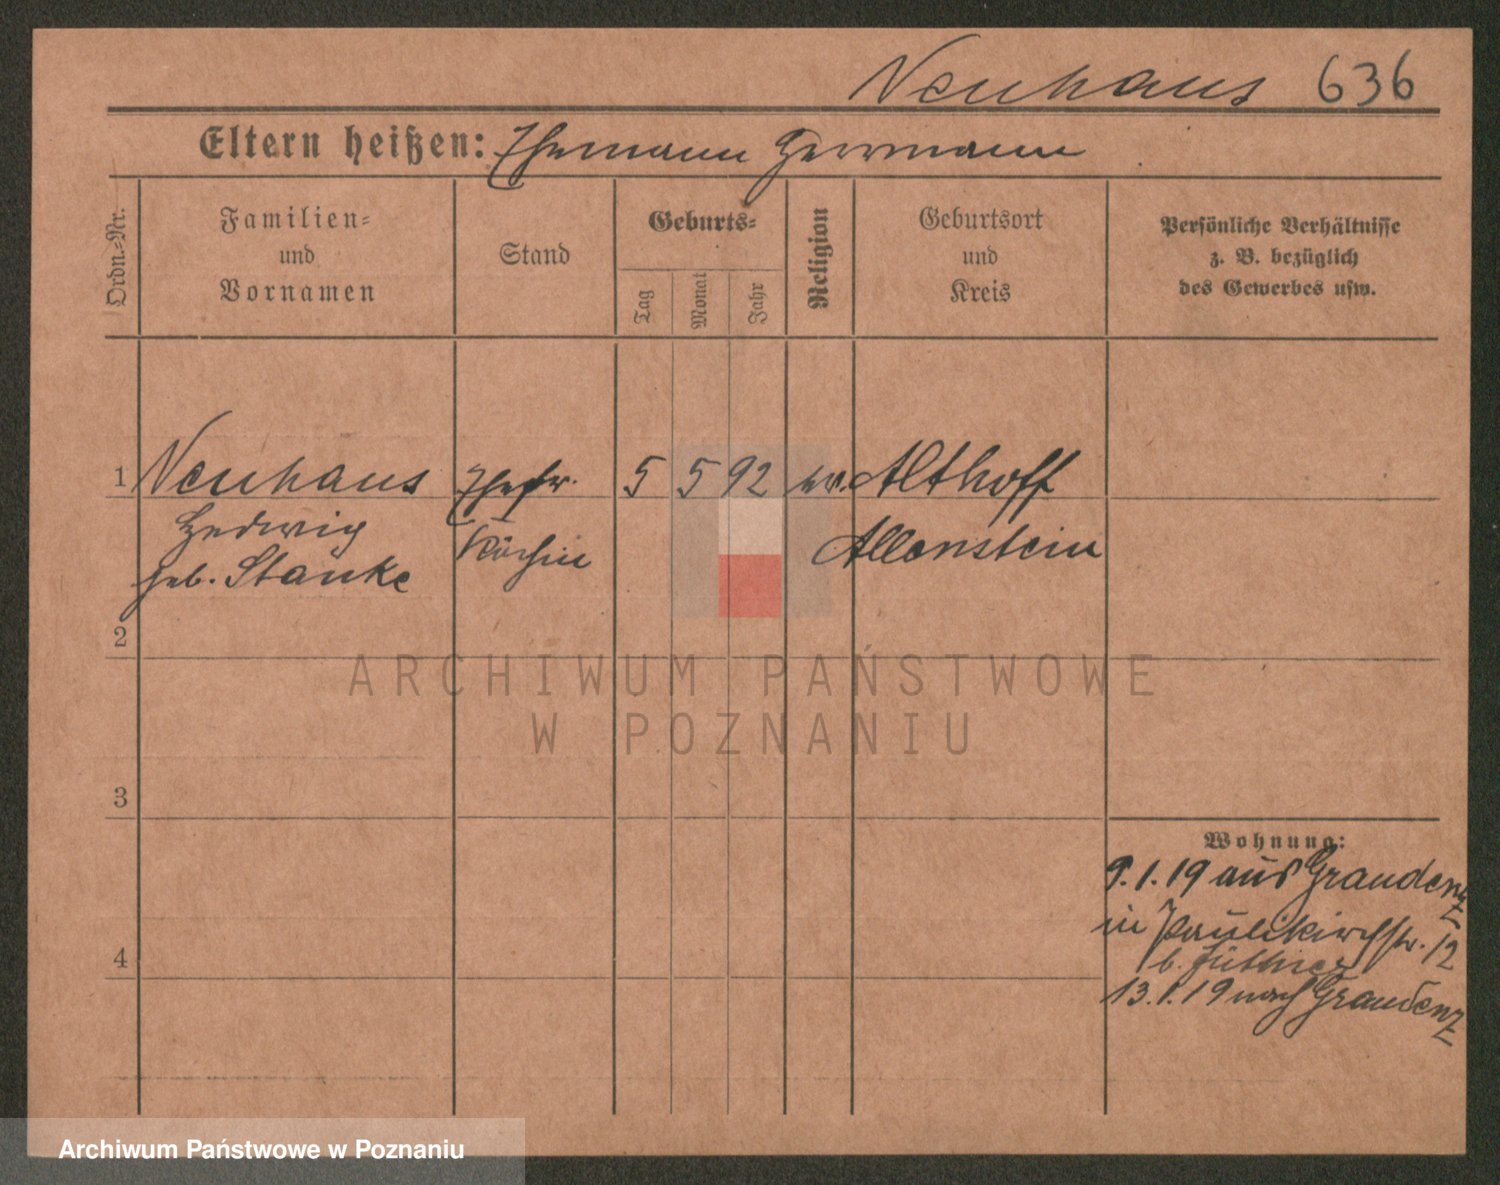 Neuhaus 636
Eltern heißen: Ehemann Hermann
Ordn.-Nr.
Familien-
und
Vornamen
Stand
Geburts-
Tag
Monat
Jahr
Religion
Geburtsort
und
Kreis
Persönliche Verhältnisse
z. B. bezüglich
des Gewerbes usw.
1 Neuhaus Ehefr. 5 5 92 ev. Althoff
Hedwig Köchin Allenstein
geb. Stanke
2
3
4
Wohnung:
9.1.19 aus Graudenz
in Paulikirchstr. 12
b. Hüttner
13.1.19 nach Graudenz
ARCHIWUM PAŃSTWOWE
W POZNANIU
Archiwum Państwowe w Poznaniu